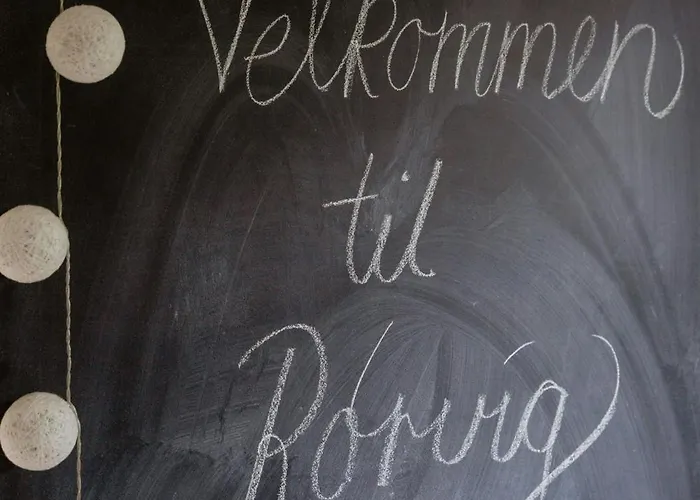 Velkommen
til
Rørvig